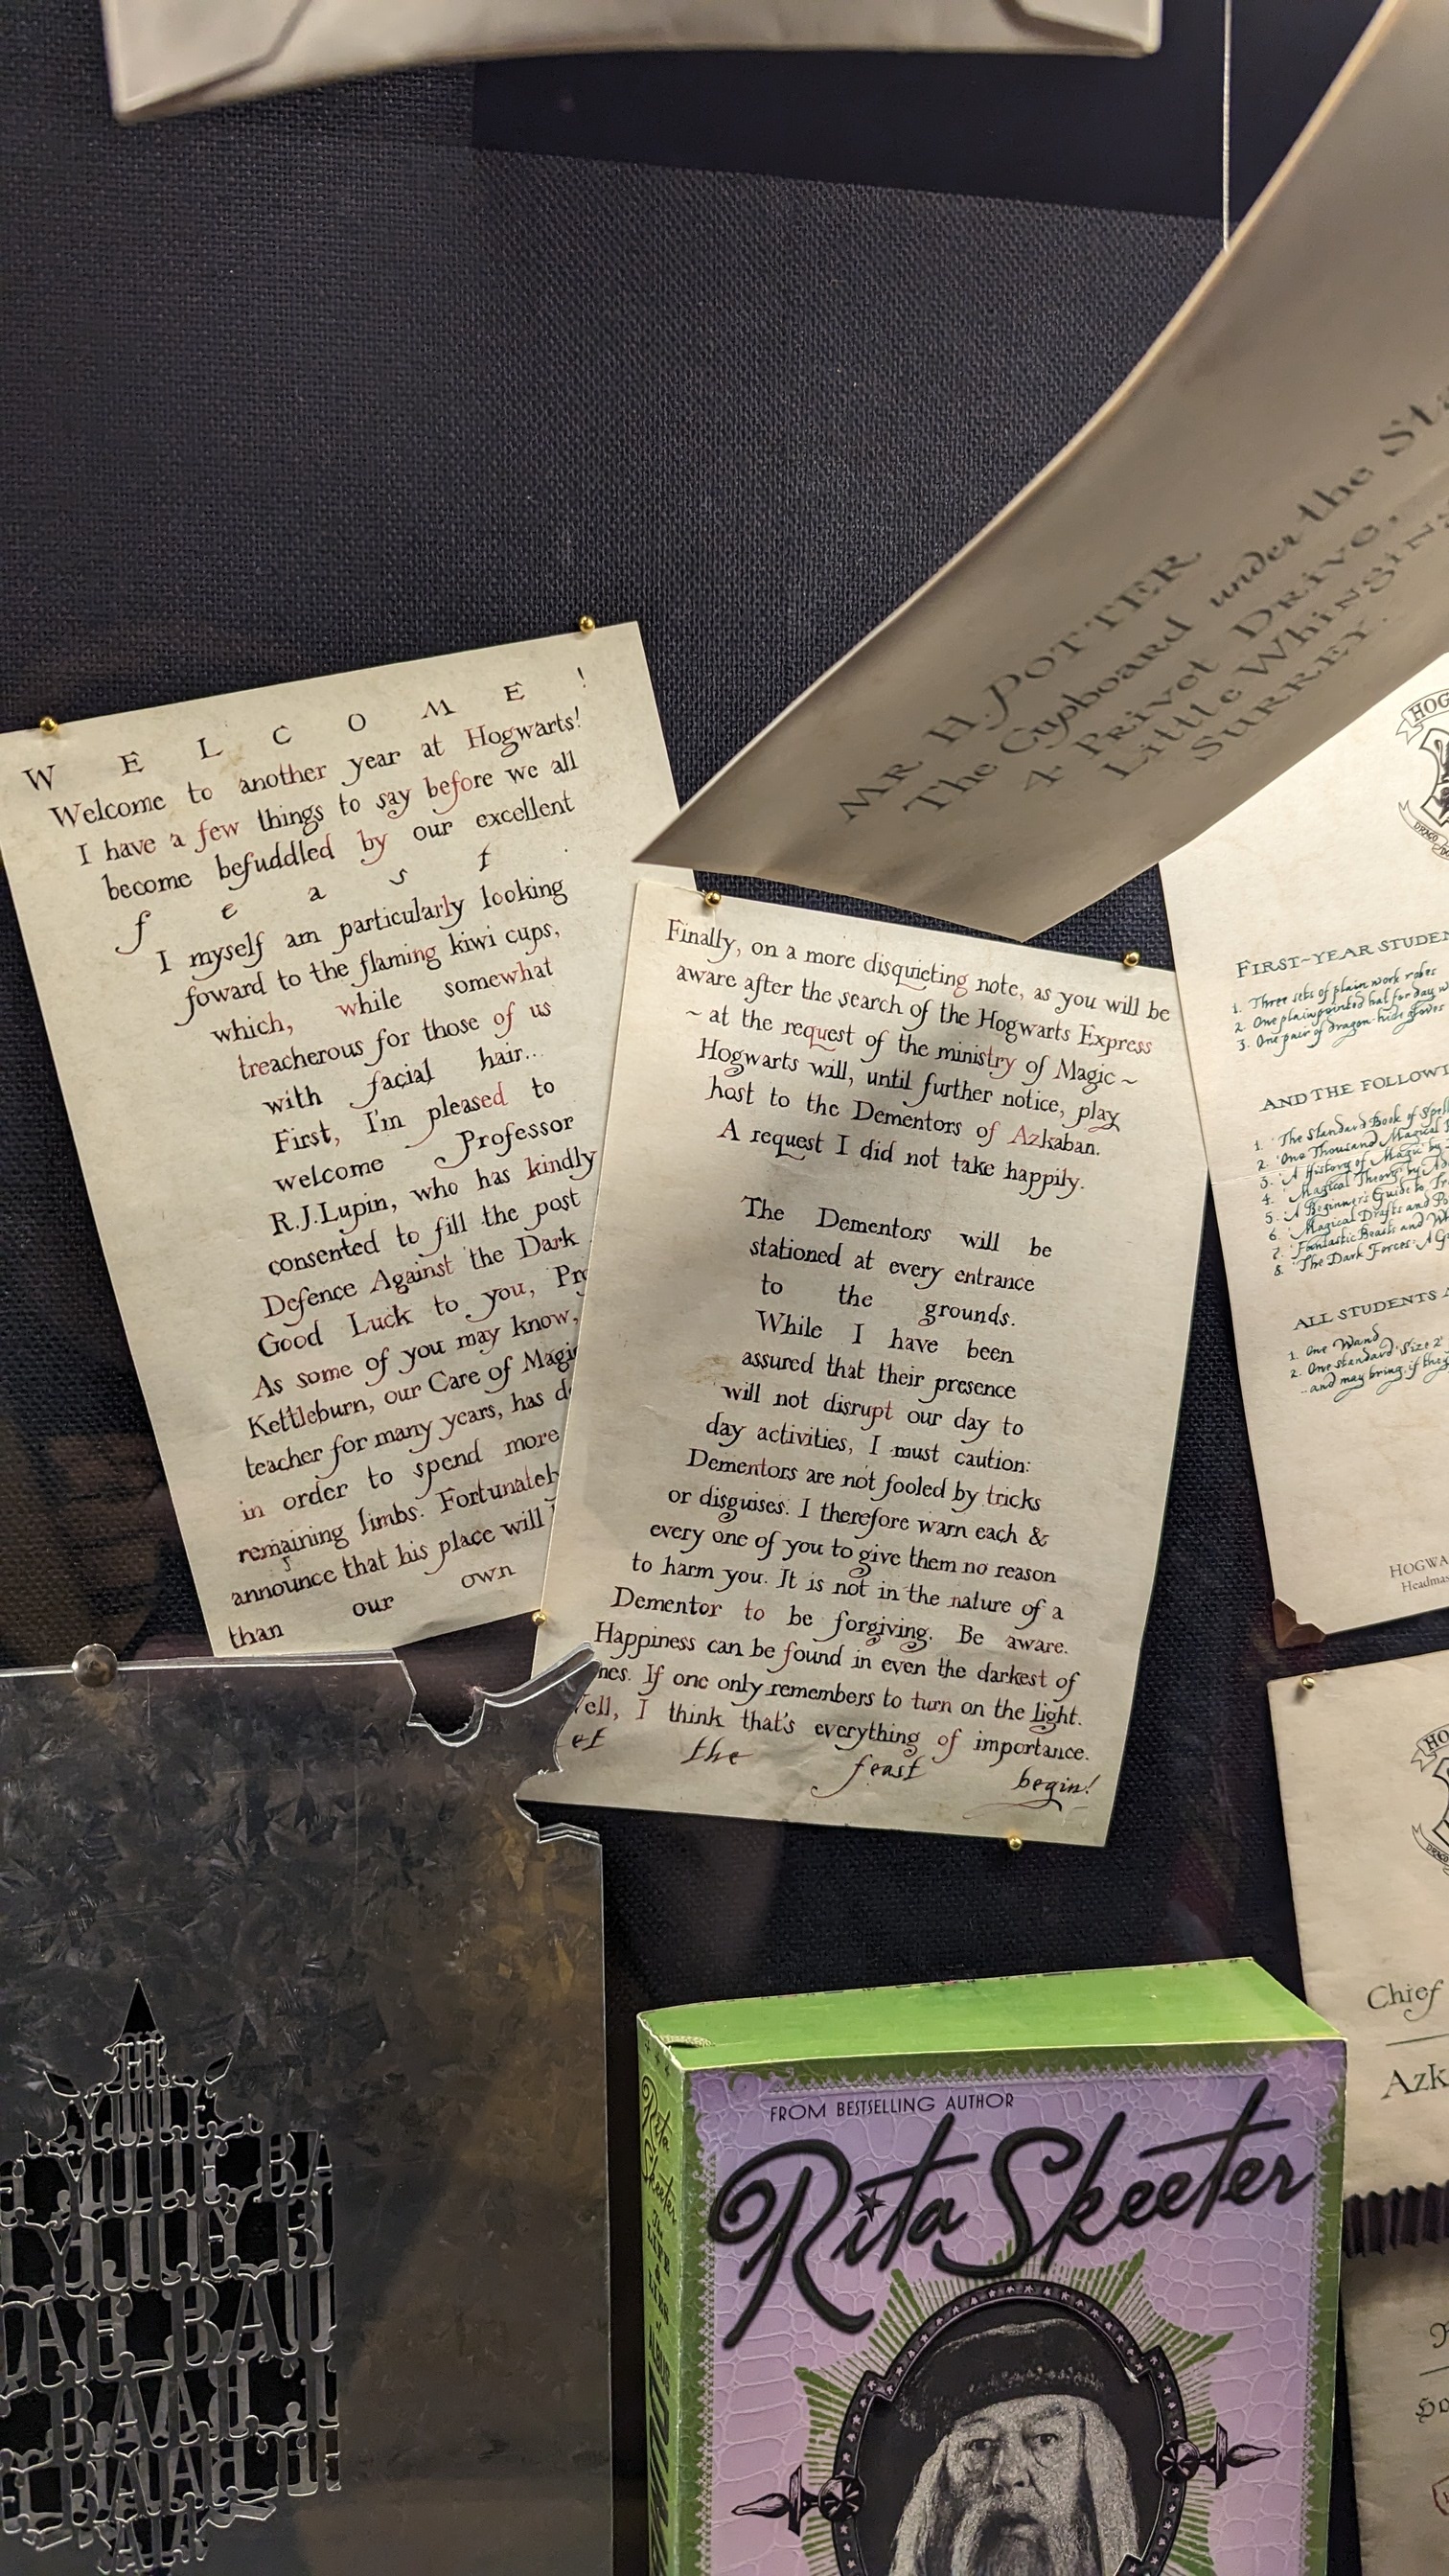 W E L C O M E !
Welcome to another year at Hogwarts!
I have a few things to say before we all
become befuddled by our excellent
f e a s t .
I myself am particularly looking
foward to the flaming kiwi cups,
which, while somewhat
treacherous for those of us
with facial hair...
First, I'm pleased to
welcome Professor
R.J.Lupin, who has kindly
consented to fill the post
Defence Against the Dark
Good Luck to you,
As some of you may know,
Kettleburn, our Care of
teacher for many years, has
in order to spend more
remaining limbs.
announce that his place will
than our own
Finally, on a more disquieting note, as you will be
aware after the search of the Hogwarts Express
~ at the request of the ministry of Magic ~
Hogwarts will, until further notice, play
host to the Dementors of Azkaban.
A request I did not take happily.
The Dementors will be
stationed at every entrance
to the grounds.
While I have been
assured that their presence
will not disrupt our day to
day activities, I must caution:
Dementors are not fooled by tricks
or disguises. I therefore warn each &
every one of you to give them no reason
to harm you. It is not in the nature of a
Dementor to be forgiving. Be aware.
Happiness can be found in even the darkest of
If one only remembers to turn on the light.
I think that's everything of importance.
the feast begin!
MR. H. POTTER
The Cupboard under the
4 Privet Drive,
Little
SURREY.
FIRST-YEAR
1. Three sets of plain work robes
2. One plain pointed hat for day
3. One pair of dragon-hide gloves
AND THE
1. 'The Standard Book of
2. 'One Thousand Magical
3. 'A History of Magic' by
4. 'Magical Theory' by
5. 'A Beginner's Guide to
6. 'Magical Drafts and
7. 'Fantastic Beasts and
8. 'The Dark Forces: A
ALL STUDENTS
1. One Wand
2. One standard Size 2
...and may bring, if they
Chief
FROM BESTSELLING AUTHOR
Rita Skeeter
Rita Skeeter